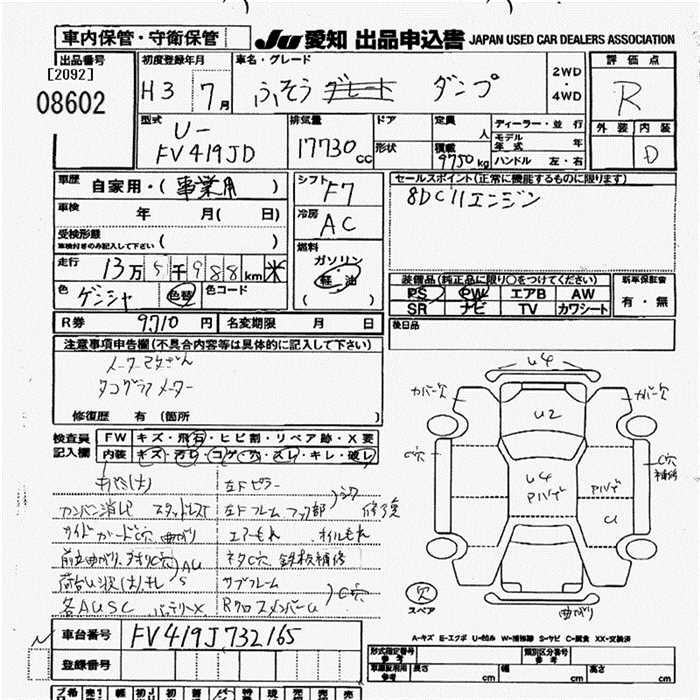 車内保管・守衛保管
JU 愛知 出品申込書 JAPAN USED CAR DEALERS ASSOCIATION
出品番号
[2092]
08602
初度登録年月
H3 7月
車名・グレード
ふそう グレード ダンプ
2WD
・
4WD
評価点
R
外装 内装
D
型式
U-
FV419JD
排気量
17730cc
ドア
形状
定員
人
積載
9750kg
ディーラー・並行
モデル年式 年
ハンドル 左・右
車歴 自家用・(事業用)
車検 年 月( 日)
受検形態
車検付きのみ記入して下さい ( )
走行 13万5千988km
色 ゲンシャ 色替 色コード
シフト
F7
冷房
AC
燃料
ガソリン
軽・油
( )
セールスポイント(正常に機能するものに限ります)
8DC11エンジン
装備品(純正品に限り○をつけてください)
PS PW エアB AW
SR ナビ TV カワシート
新車保証書
有・無
後日品
R券 9,710円 名変期限 月 日
注意事項申告欄(不具合内容等は具体的に記入して下さい)
メーター改ざん
タコグラフメーター
修復歴 有(箇所 )
検査員
記入欄
FW キズ・飛石・ヒビ割・リペア跡・X要
内装 キズ・汚レ・コゲ・穴・スレ・キレ・破レ
左Fピラー
カンバン消し
左Fフレーム
修復
サイドガードC穴 曲がり
エアーもれ オイルもれ
AU
S
サブフレーム
C穴
各AUSC バッテリーX
RクロスメンバーU
U4
カバー欠
カバー欠
U2
C穴
U4
C穴
補修
U
欠
スペア
曲がり
A-キズ E-エクボ U-凹み W-補修跡 S-サビ C-腐食 XX-交換済
車台番号 FV419J732165
登録番号
型式指定番号
参考
類別区分番号
参考
車庫証明用
参考
長さ cm 幅 cm 高さ cm